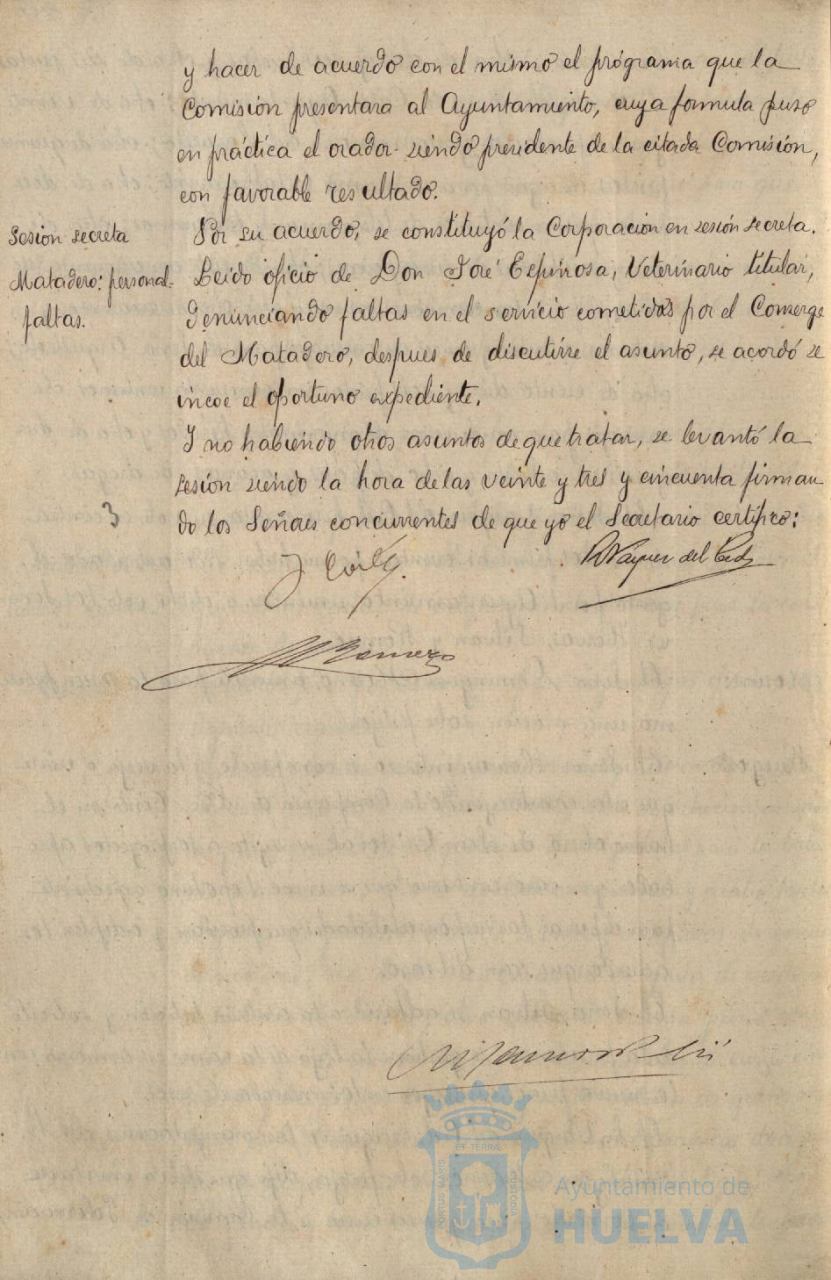 y hacer de acuerdo con el mismo el prógrama que la
Comisión presentara al Ayuntamiento, cuya formula puso
en práctica el orador siendo presidente de la citada Comisión,
con favorable resultado.
Sesion secreta
Por su acuerdo, se constituyó la Corporación en sesión secreta.
Matadero: personal.
faltas.
Leido oficio de Don José Espinosa, Veterinario titular,
denunciando faltas en el servicio cometidas por el Conserge
del Matadero, despues de discutirse el asunto, se acordó se
incoe el oportuno expediente.
Y no habiendo otros asuntos de que tratar, se levantó la
sesión siendo la hora de las veinte y tres y cincuenta firman
do los Señores concurrentes de que yo el Secretario certifico:
3
Vazquez del
Romero
ET TERRAE
Ayuntamiento de
HUELVA